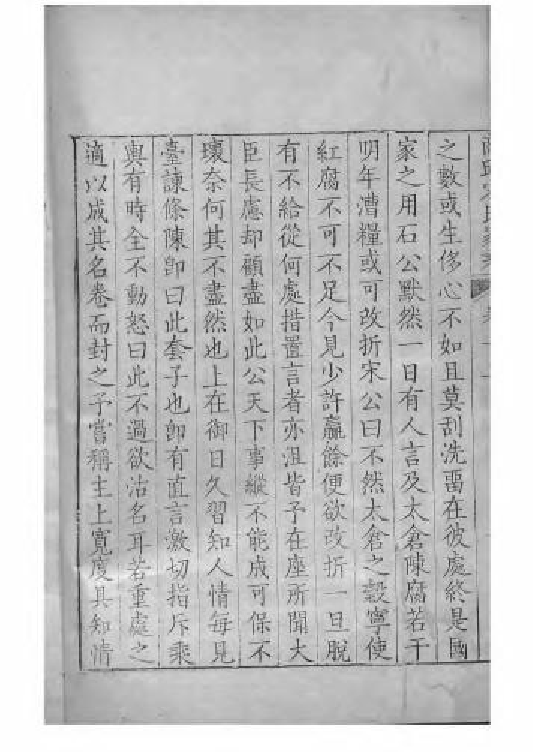 之數或生侈心不如且莫刮洗留在彼處終是國
家之用石公默然一日有人言及太倉陳腐若干
明年漕糧或可改折宋公曰不然太倉之穀寧使
紅腐不可不足今見少許贏餘便欲改折一旦脫
有不給從何處措置言者亦沮皆予在座所聞大
臣長慮却顧盡如此公天下事縱不能成可保不
壞奈何其不盡然也上在御日久習知人情每見
臺諫條陳卽曰此套子也卽有直言激切指斥乘
輿有時全不動怒曰此不過欲沽名耳若重處之
適以成其名卷而封之予嘗稱主上寬度具知情